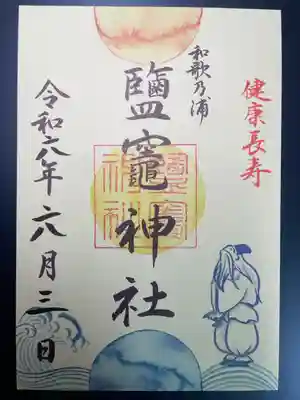 健康長寿
和歌乃浦
鹽竈神社
令和六年六月三日